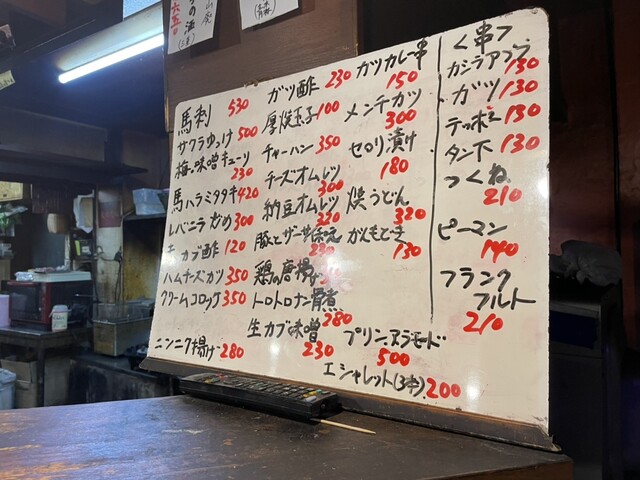 馬刺 530
サクラゆっけ 500
梅・味噌キューリ 230
馬ハラミタタキ 420
レバニラ炒め 300
カブ酢 120
ハムチーズカツ 350
クリームコロッケ 350
ニンニク揚げ 280
ガツ酢 230
厚焼玉子 100
チャーハン 350
チーズオムレツ 300
納豆オムレツ 320
鶏の唐揚
トロトロナス煮 380
生カブ味噌 230
ガツカレー串 150
メンチカツ 300
セロリ漬け 180
焼うどん 320
がんもどき 130
プリンアラモード 500
エシャレット(3本) 200
<串>
カシラアブラ 130
ガツ 130
テッポー 130
タン下 130
つくね 210
ピーマン 140
フランク
フルト 210